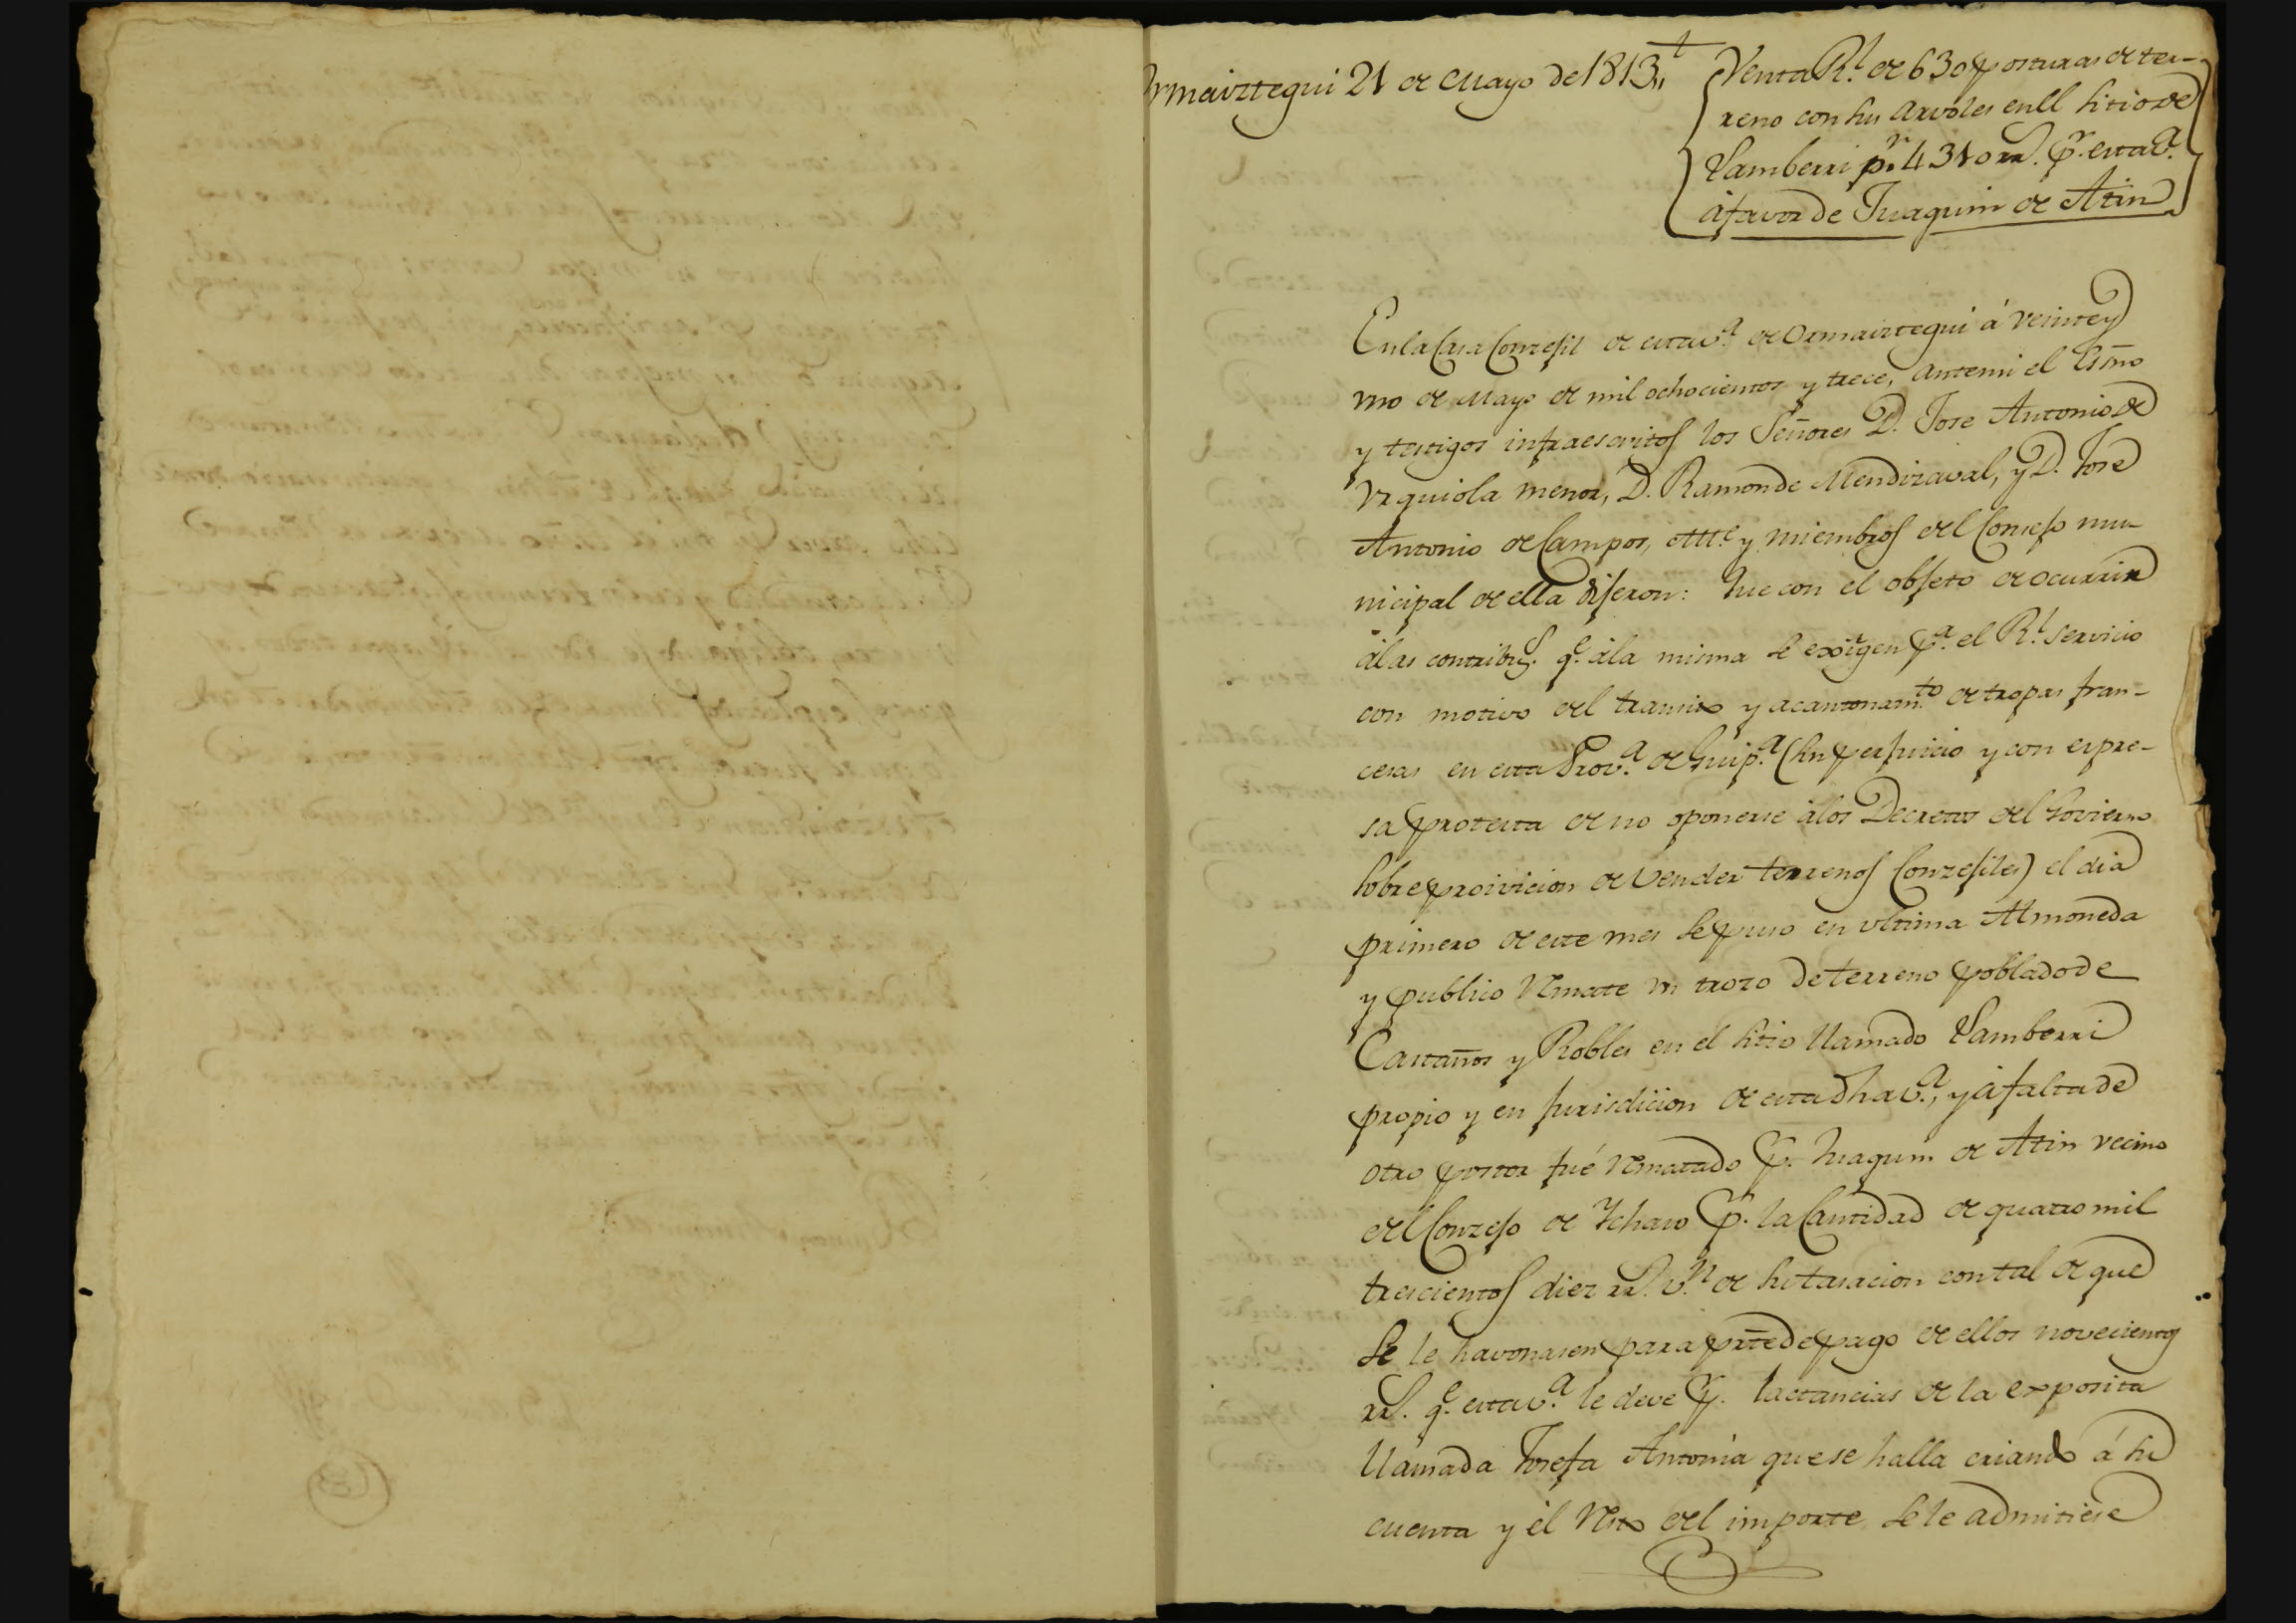 Ormaiztegui 21 de Mayo de 1813,,
Venta Rl. de 630 posturas de ter-
reno con sus arvoles en el sitio de
Lamberri pr. 4310 rrs. pr. esta va.
á favor de Juaquin de Atin
En la Casa Conzejil de esta va. de Ormaiztegui á veinte y
vno de Mayo de mil ochocientos y trece, ante mi el Esno
y testigos infraescritos los Señores D. Jose Antonio de
Vrquiola menor, D. Ramon de Mendizaval, y D. Jose
Antonio de Campos, y miembros del Consejo mu-
nicipal de ella dijeron: Que con el objeto de ocurrir
á las contribs. qe. á la misma se exigen pa. el Rl. servicio
con motivo del transito y acantonamto. de tropas fran-
cesas en esta Prova. de Guipa. (sin perjuicio y con espre-
sa protesta de no oponerse á los Decretos del Govierno
sobre proivicion de vender terrenos Conzejiles) el dia
primero de este mes se puso en vltima Almoneda
y publico Remate vn trozo de terreno poblado de
Castaños y Robles en el sitio llamado Lamberri
propio y en jurisdicion de esta dha va., y á falta de
otro postor fué rematado pr. Juaquin de Atin vecino
del Conzejo de Ychaso pr. la Cantidad de quatro mil
trescientos diez rrs. vn. de su tasacion con tal de que
se le havonasen para prte de pago de ellos novecientos
rrs. qe. esta va. le deve pr. lactancias de la exposita
llamada Josefa Antonia que se halla criando á su
cuenta y él Resto del importe se le admitiese